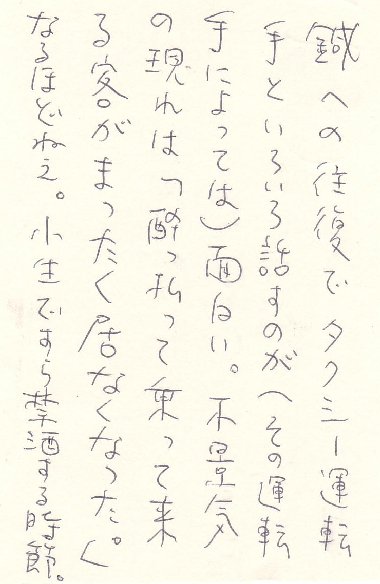 鍼への往復でタクシー運転
手といろいろ話すのが(その運転
手によっては)面白い。不景気
の現れは「酔っ払って乗って来
る客がまったく居なくなった。」
なるほどねえ。小生ですら禁酒する時節。